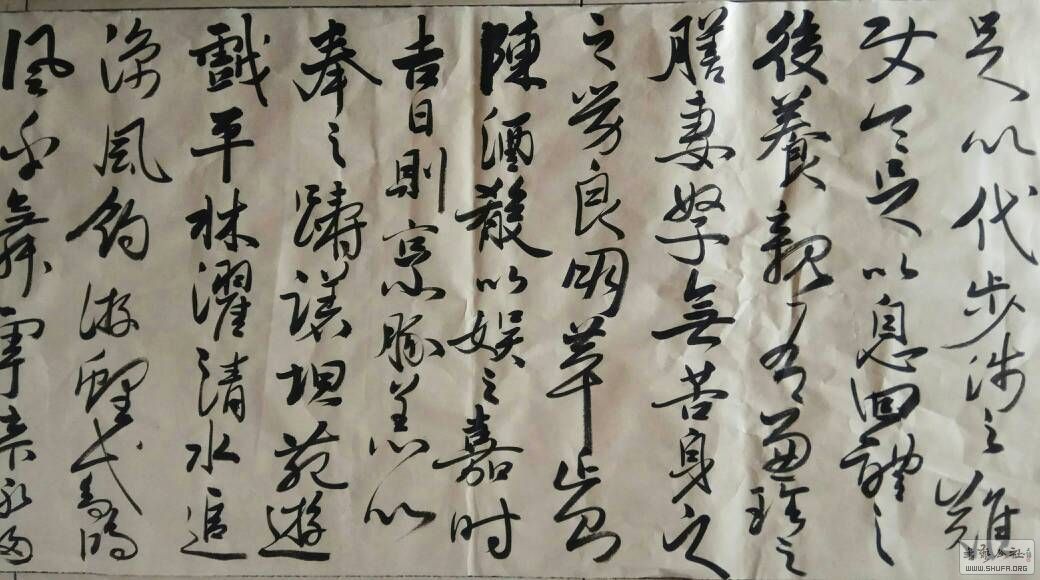 足以代步涉之難
令足以息四體之
後養親有兼珍之
膳妻孥無苦身之
之勞良朋萃止則
陳酒殽以娱之嘉时
吉日則烹豚羔以
奉之躊躇坦苑遊
戲平林濯清水追
涼風釣游鯉弋高鴻
風乎舞雩
WWW.SHUFA.ORG